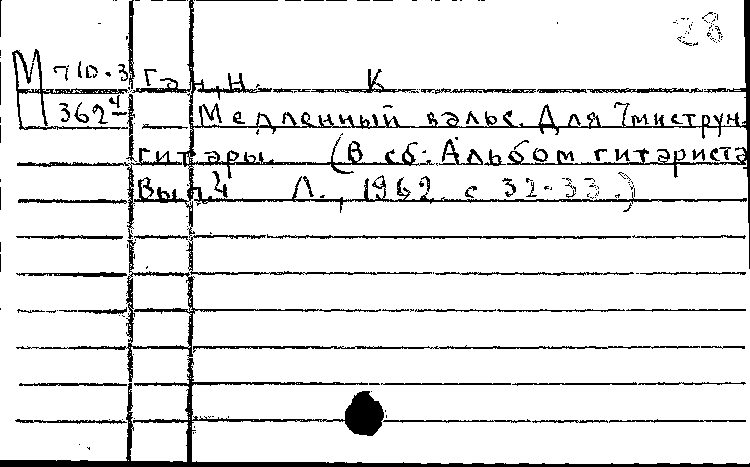 28
М 710.3 Ган, Н. К
362⁴ Медленный вальс. Для 7миструн.
гитары. (В сб: Альбом гитариста
Вып.4 Л., 1962 с 32-33.)